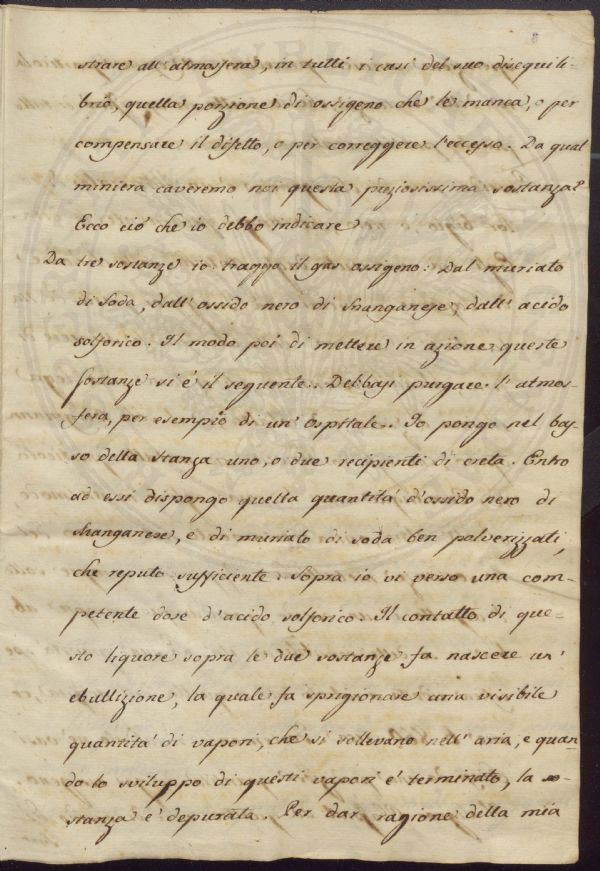 8
strare all'atmosfera, in tutti i casi del suo disequili-
brio, quella porzione di ossigeno che le manca, o per
compensare il difetto, o per correggere l'eccesso. Da qual
miniera caveremo noi questa preziosissima sostanza?
Ecco ciò che io debbo indicare
Da tre sostanze io traggo il gas ossigeno: Dal muriato
di Soda, dall'ossido nero di Manganese, dall'acido
solforico. Il modo poi di mettere in azione queste
sostanze si é il seguente. Debbasi purgare l'atmos-
fera, per esempio di un'ospitale. Io pongo nel bas-
so della stanza uno, o due recipienti di creta. Entro
ad essi dispongo quella quantitá d'ossido nero di
Manganese, e di muriato di soda ben polverizzati,
che reputo sufficiente. Sopra io vi verso una com-
petente dose d'acido solforico. Il contatto di que-
sto liquore sopra le due sostanze fa nascere un'
ebullizione, la quale fa sprigionare una visibile
quantitá di vapori, che si sollevano nell'aria, e quan-
do lo sviluppo di questi vapori é terminato, la
stanza é depurata. Per dar ragione della mia